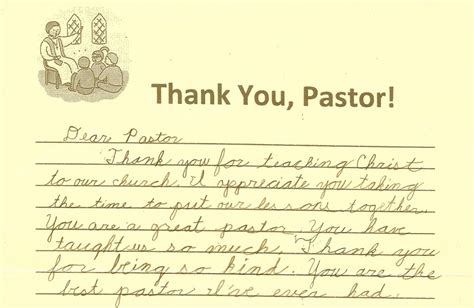 Thank You, Pastor!
Dear Pastor
Thank you for teaching Christ
to our church. I appreciate you taking
the time to put our lessons together.
You are a great pastor. You have
taught us so much. Thank you
for being so kind. You are the
best pastor I've ever had.